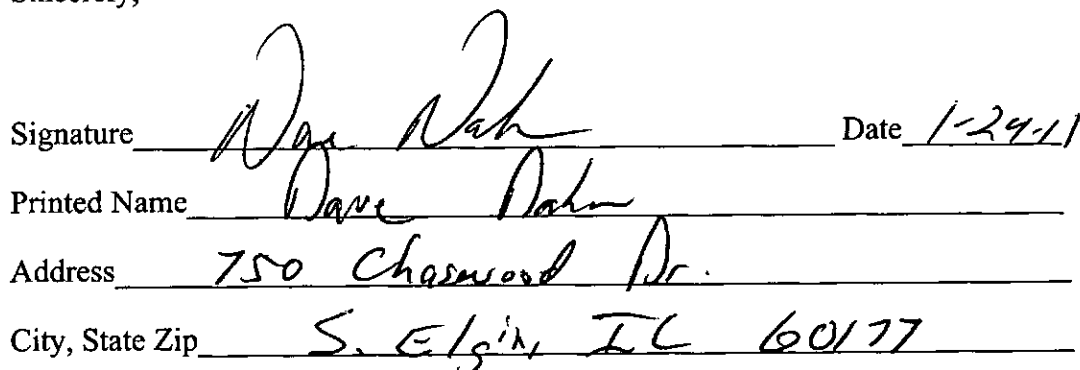 Sincerely,
Signature Dave Dahm Date 1-24-11
Printed Name Dave Dahm
Address 750 Chasewood Dr.
City, State Zip S. Elgin, IL 60177